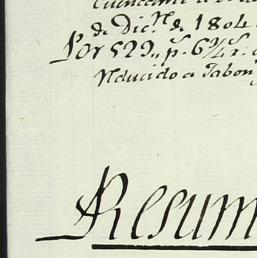 de Dic.re de 1804
Por 529,, p.s 6¾ r.
Nducido a Tabon
Resum